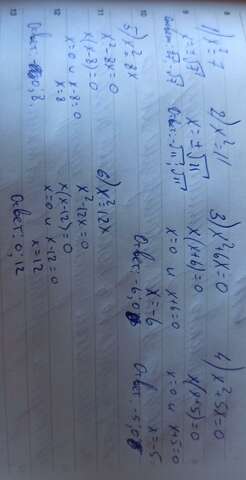 1) x²=7
x=±√7
Ответ: -√7; √7
2) x²=11
x=±√11
Ответ: -√11; √11
3) x²+6x=0
x(x+6)=0
x=0 и x+6=0
x=-6
Ответ: -6; 0
4) x²+5x=0
x(x+5)=0
x=0 и x+5=0
x=-5
Ответ: -5; 0
5) x²=8x
x²-8x=0
x(x-8)=0
x=0 и x-8=0
x=8
Ответ: 0; 8
6) x²=12x
x²-12x=0
x(x-12)=0
x=0 и x-12=0
x=12
Ответ: 0; 12
8
9
10
11
12
13